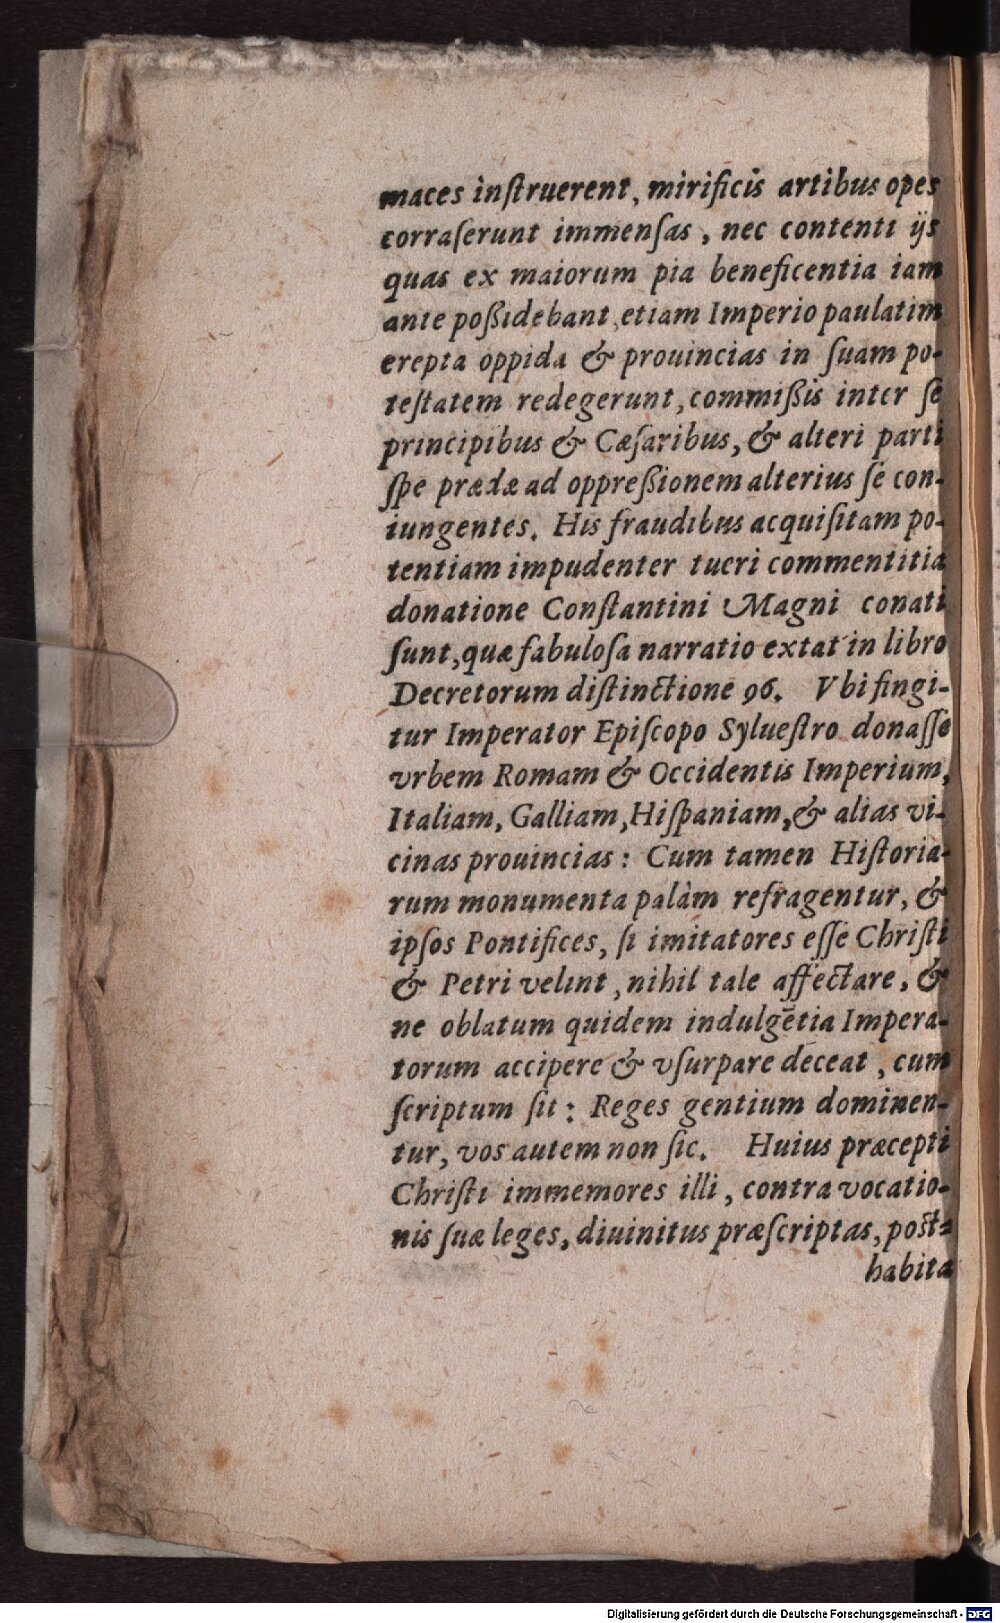 maces inſtruerent, mirificis artibus opes
corraſerunt immenſas, nec contenti ijs
quas ex maiorum pia beneficentia iam
ante poßidebant, etiam Imperio paulatim
erepta oppida & prouincias in ſuam po-
teſtatem redegerunt, commißis inter ſe
principibus & Cæſaribus, & alteri parti
ſpe prædæ ad oppreßionem alterius ſe con-
iungentes. His fraudibus acquiſitam po-
tentiam impudenter tueri commentitia
donatione Conſtantini Magni conati
ſunt, quæ fabuloſa narratio extat in libro
Decretorum diſtinctione 96. Vbi fingi-
tur Imperator Epiſcopo Sylueſtro donaſſe
vrbem Romam & Occidentis Imperium,
Italiam, Galliam, Hiſpaniam, & alias vi-
cinas prouincias: Cum tamen Hiſtoria-
rum monumenta palàm refragentur, &
ipſos Pontifices, ſi imitatores eſſe Chriſti
& Petri velint, nihil tale affectare, &
ne oblatum quidem indulgētia Impera-
torum accipere & vſurpare deceat, cum
ſcriptum ſit: Reges gentium dominen-
tur, vos autem non ſic. Huius præcepti
Chriſti immemores illi, contra vocatio-
nis ſuæ leges, diuinitus præſcriptas, post-
habita
Digitalisierung gefördert durch die Deutsche Forschungsgemeinschaft - DFG